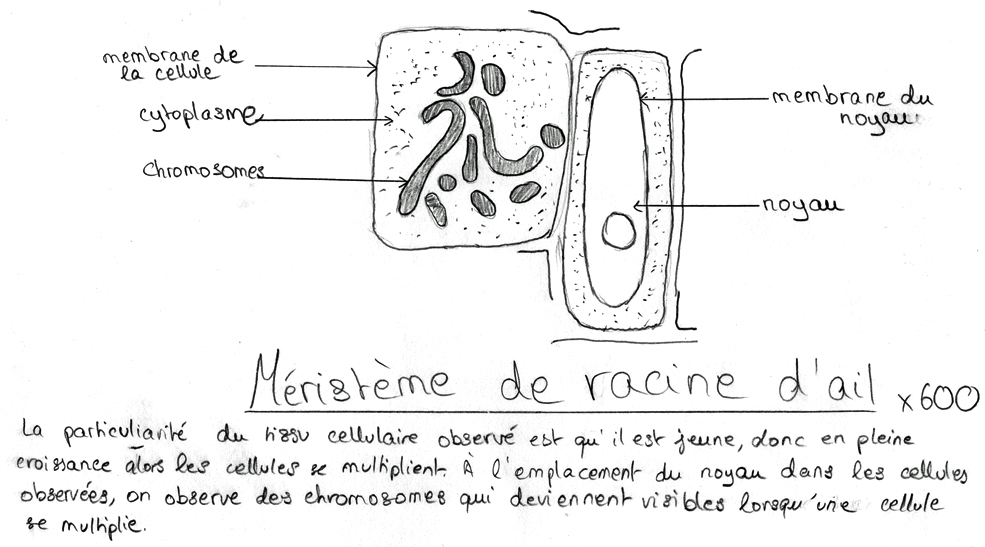 membrane de
la cellule
cytoplasme
chromosomes
membrane du
noyau
noyau
Méristème de racine d'ail x600
La particuliarité du tissu cellulaire observé est qu'il est jeune, donc en pleine
croissance alors les cellules se multiplient. À l'emplacement du noyau dans les cellules
observées, on observe des chromosomes qui deviennent visibles lorsqu'une cellule
se multiplie.